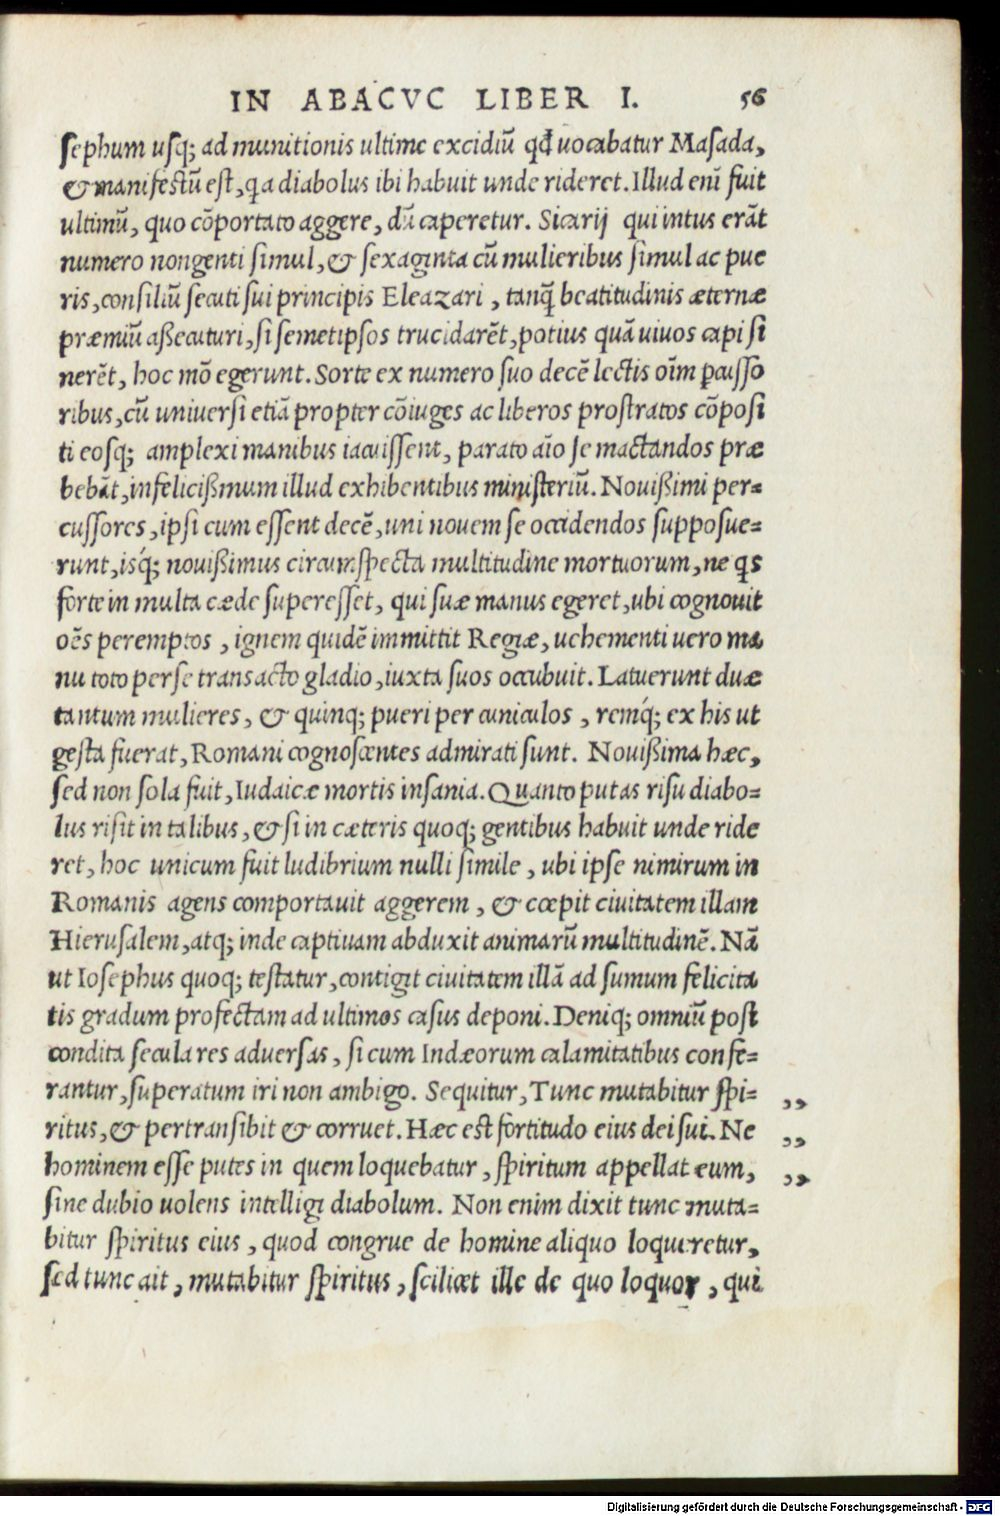 IN ABACVC LIBER I. 56
sephum usq; ad munitionis ultimę excidiũ qđ uocabatur Masada,
& manifestũ est, qa diabolus ibi habuit unde rideret. Illud enĩ fuit
ultimũ, quo cõportato aggere, dũ caperetur. Sicarij qui intus erãt
numero nongenti simul, & sexaginta cũ mulieribus simul ac pue
ris, consiliũ secuti sui principis Eleazari, tanq̃ beatitudinis æternæ
præmiũ aßecuturi, si semetipsos trucidarẽt, potius quã uiuos capi si
nerẽt, hoc mõ egerunt. Sorte ex numero suo decẽ lectis oĩm pcusso
ribus, cũ uniuersi etiã propter cõiuges ac liberos prostratos cõposi
ti eosq; amplexi manibus iacuissent, parato aĩo se mactandos præ
bebãt, infelicißimum illud exhibentibus ministeriũ. Nouißimi per=
cussores, ipsi cum essent decẽ, uni nouem se occidendos supposue=
runt, isq́; nouißimus circumspecta multitudine mortuorum, ne qs
forte in multa cæde superesset, qui suæ manus egeret, ubi cognouit
oẽs peremptos, ignem quidẽ immittit Regiæ, uehementi uero ma
nu toto per se transacto gladio, iuxta suos occubuit. Latuerunt duæ
tantum mulieres, & quinq; pueri per cuniculos, remq́; ex his ut
gesta fuerat, Romani cognoscentes admirati sunt. Nouißima hæc,
sed non sola fuit, Iudaicæ mortis insania. Quanto putas risu diabo=
lus risit in talibus, & si in cæteris quoq; gentibus habuit unde ride
ret, hoc unicum fuit ludibrium nulli simile, ubi ipse nimirum in
Romanis agens comportauit aggerem, & cœpit ciuitatem illam
Hierusalem, atq; inde captiuam abduxit animarũ multitudinẽ. Nã
ut Iosephus quoq; testatur, contigit ciuitatem illã ad sumum felicita
tis gradum profectam ad ultimos casus deponi. Deniq; omniũ post
condita secula res aduersas, si cum Iudæorum calamitatibus confe=
rantur, superatum iri non ambigo. Sequitur, Tunc mutabitur spi= ,,
ritus, & pertransibit & corruet. Hæc est fortitudo eius dei sui. Ne ,,
hominem esse putes in quem loquebatur, spiritum appellat eum, ,,
sine dubio uolens intelligi diabolum. Non enim dixit tunc muta=
bitur spiritus eius, quod congrue de homine aliquo loqueretur,
sed tunc ait, mutabitur spiritus, scilicet ille de quo loquor, qui
Digitalisierung gefördert durch die Deutsche Forschungsgemeinschaft - DFG